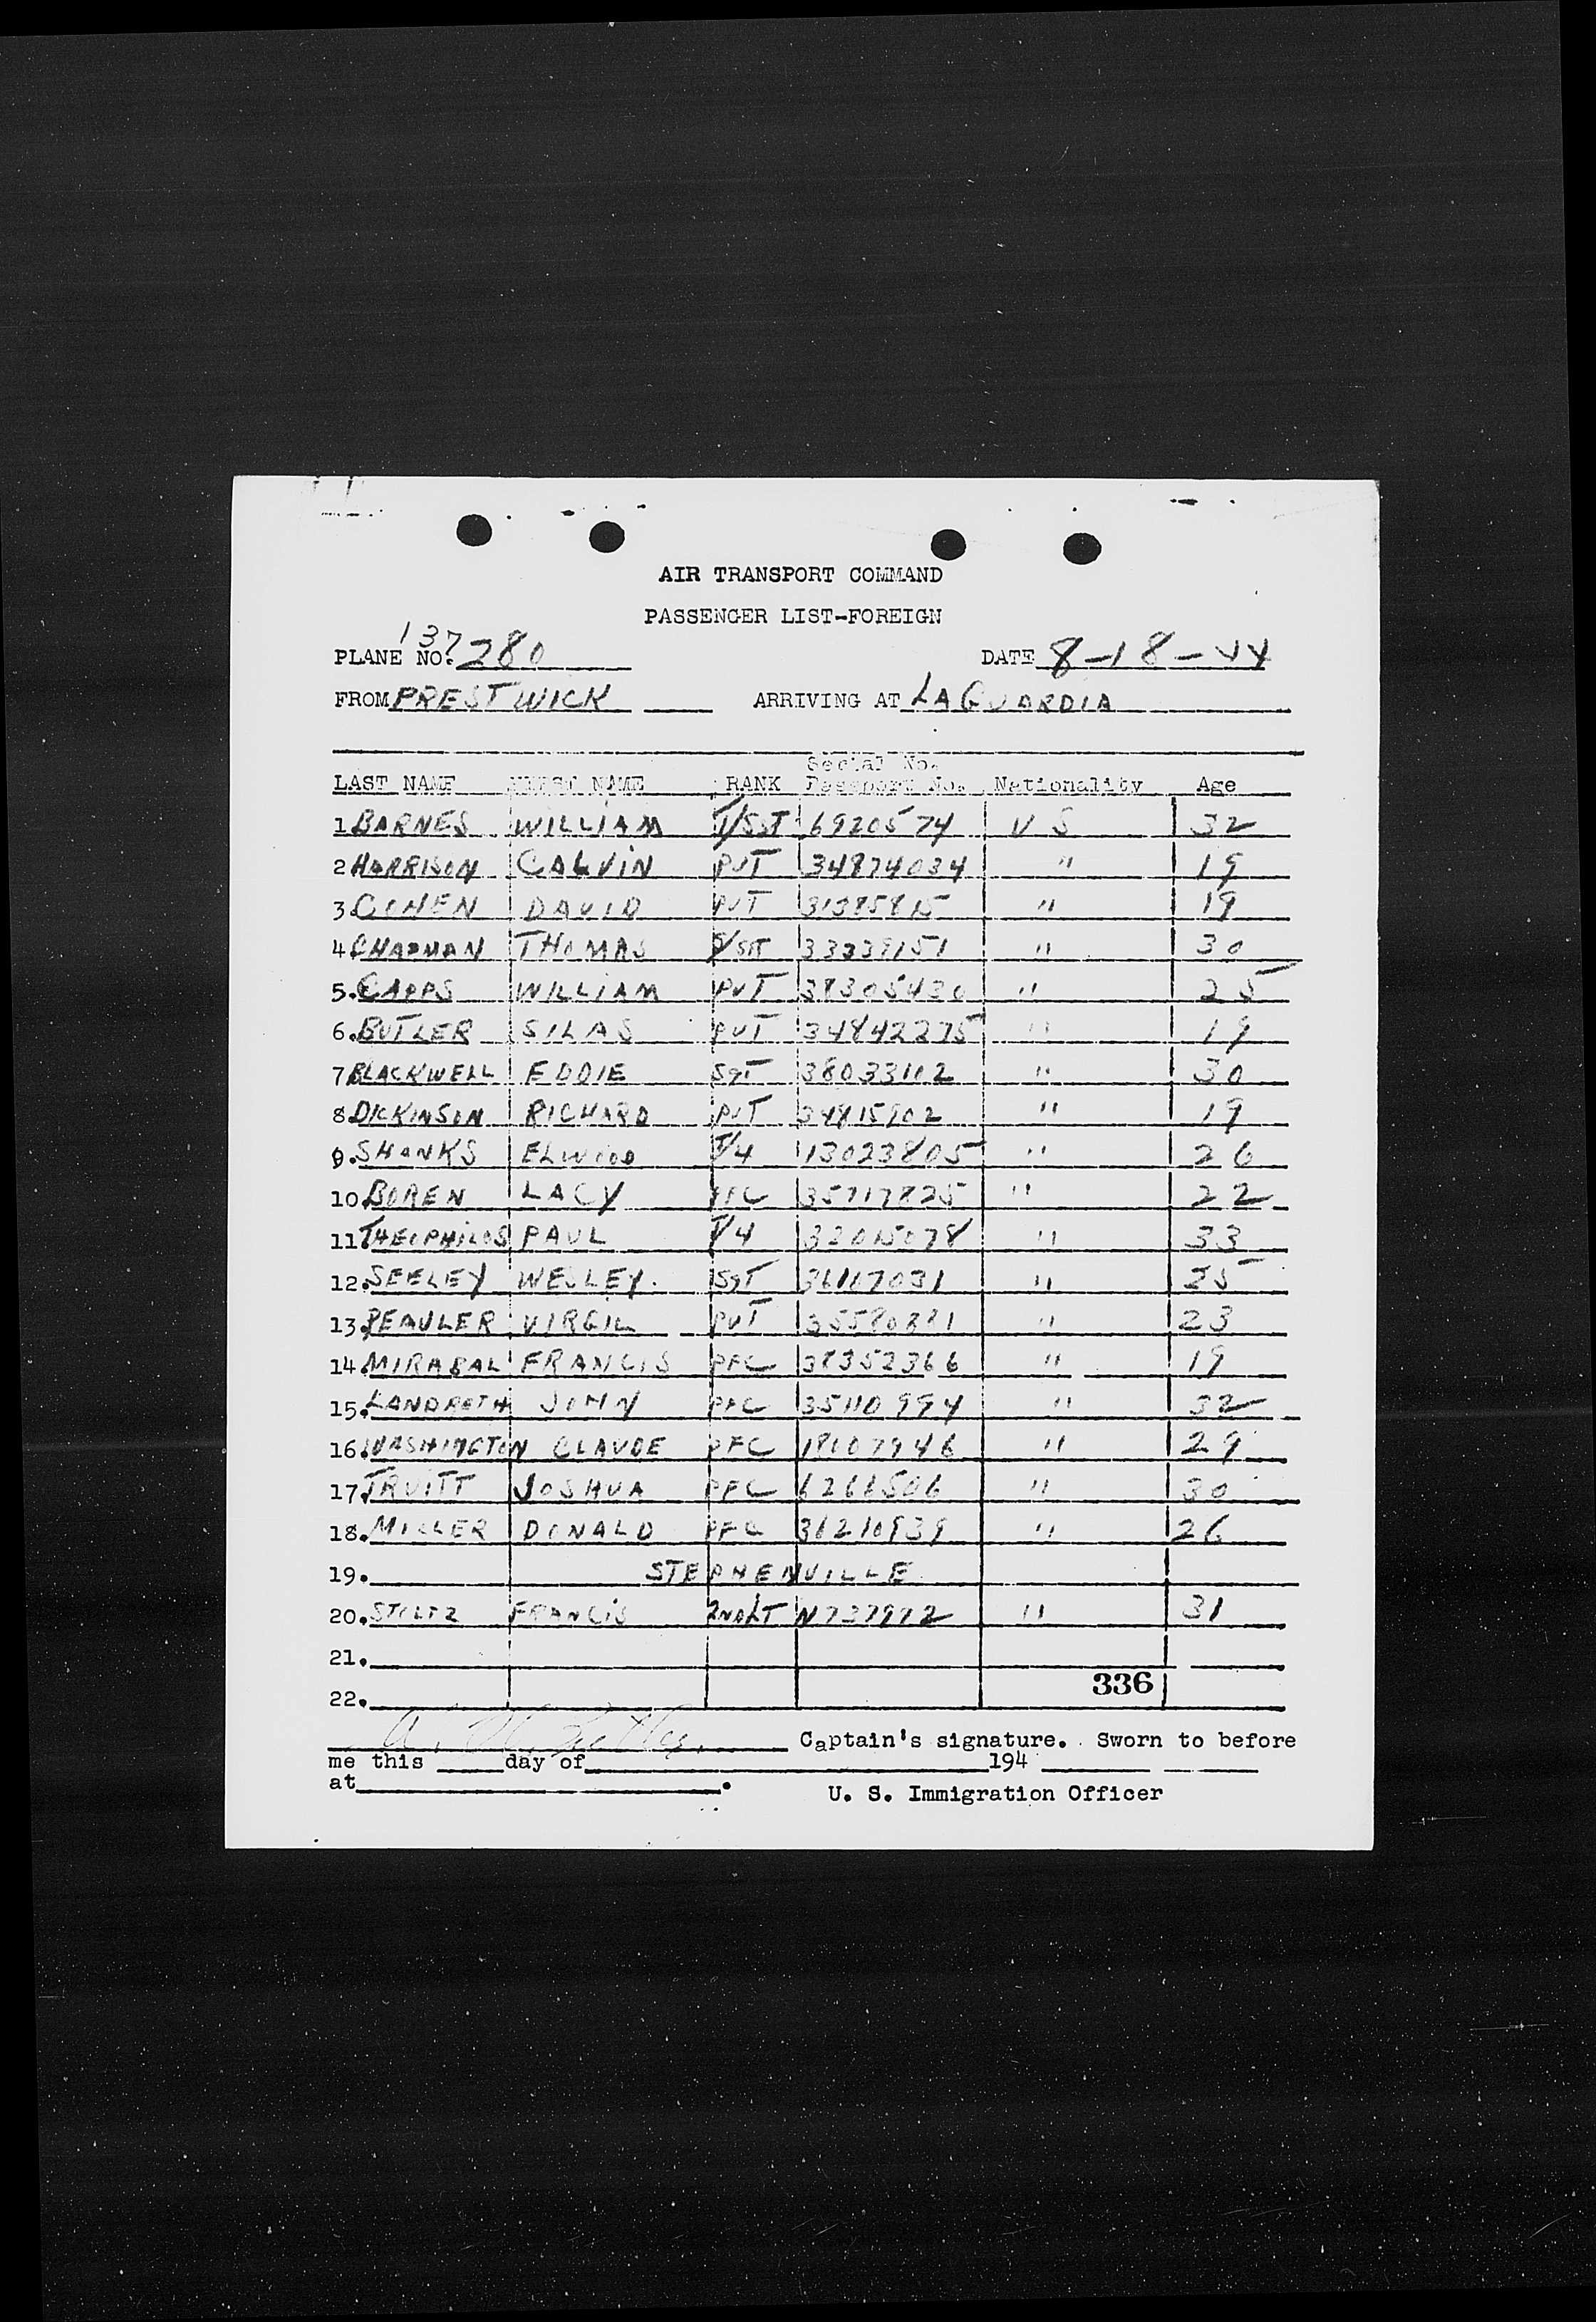 AIR TRANSPORT COMMAND
PASSENGER LIST-FOREIGN
137
PLANE NO. 280 DATE 8-18-44
FROM PRESTWICK ARRIVING AT LAGUARDIA
Serial No.
LAST NAME FIRST NAME RANK Passport No. Nationality Age
1 BARNES WILLIAM T/SGT 6920574 U S 32
2 HARRISON CALVIN PVT 34874034 " 19
3. COHEN DAVID PVT 31385815 " 19
4 CHAPMAN THOMAS S/SGT 33339151 " 30
5. CAPPS WILLIAM PVT 38305430 " 25
6. BUTLER SILAS PVT 34842275 " 19
7 BLACKWELL EDDIE SGT 38033102 " 30
8 DICKINSON RICHARD PVT 34815902 " 19
9. SHANKS ELWOOD T/4 13023805 " 26
10 BOREN LACY PFC 35717825 " 22
11 THEOPHILOS PAUL T/4 32015078 " 33
12. SEELEY WESLEY. SGT 36167031 " 25
13 PEAULER VIRGIL PVT 35580381 " 23
14 MIRABAL FRANCIS PFC 38352366 " 19
15. LANDRETH JOHN PFC 35110994 " 32
16 WASHINGTON CLAUDE PFC 18107946 " 29
17. TRUITT JOSHUA PFC 6266506 " 30
18. MILLER DONALD PFC 36210939 " 26
19. STEPHENVILLE
20. STOLTZ FRANCIS 2NDLT N737972 " 31
21.
22. 336
Captain's signature. Sworn to before
me this day of 194
at .
U. S. Immigration Officer